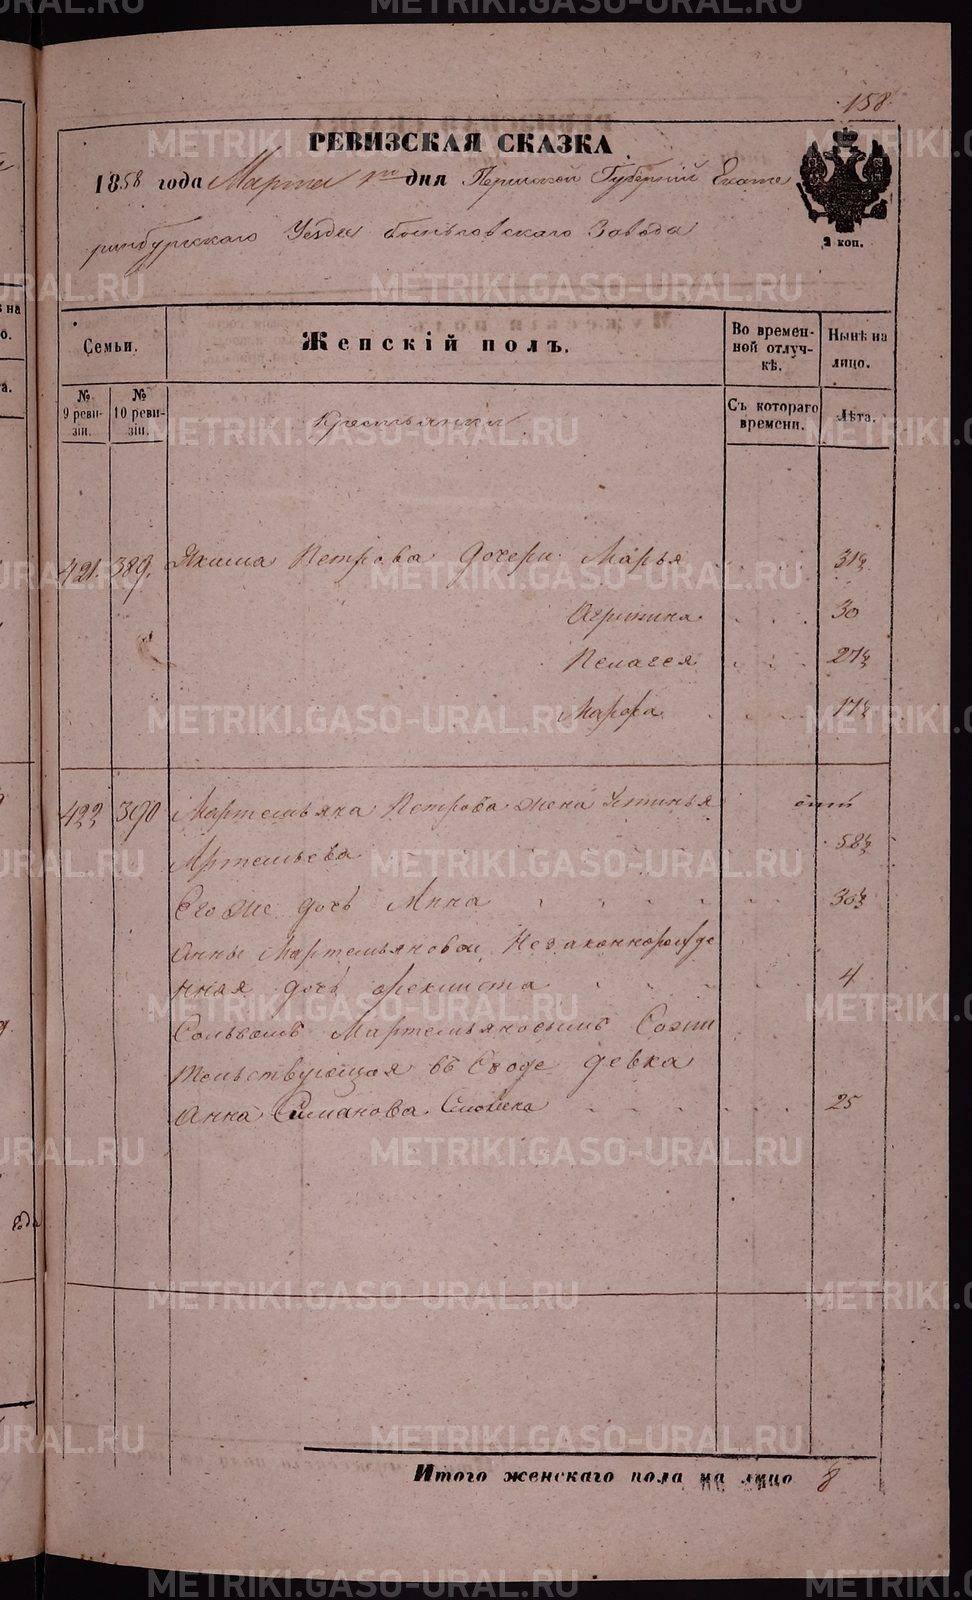 158.
РЕВИЗСКАЯ СКАЗКА
1858 года Марта 1го дня Пермской Губерніи Екате
ринбургскаго Уезда Завода
2 коп.
Семьи.
Женскій полъ.
Во времен-
ной отлуч-
кѣ.
Нынѣ на
лицо.
№ 9 реви-
зіи.
№ 10 реви-
зіи.
Съ котораго
времени.
Лѣта.
Крестьянки
421. 389. Якима Петрова дочери Марья 31½
Агрипина 30
Пелагея 27½
Марфа 17½
422 390 Мартемьяна Петрова жена Устинья
Артемьева 58½
Его же дочь Анна 30½
Анны Мартемьяновой Незаконнорожде
нная дочь 4
Мартемьяновымъ Сожи
тельствующая въ девка
Анна Симанова 25
Итого женскаго пола на лицо 8
METRIKI.GASO-URAL.RU